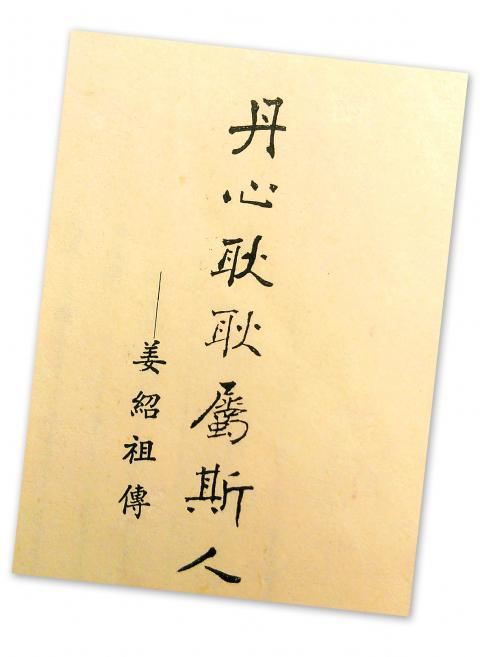 丹心耿耿屬斯人
——姜紹祖傳